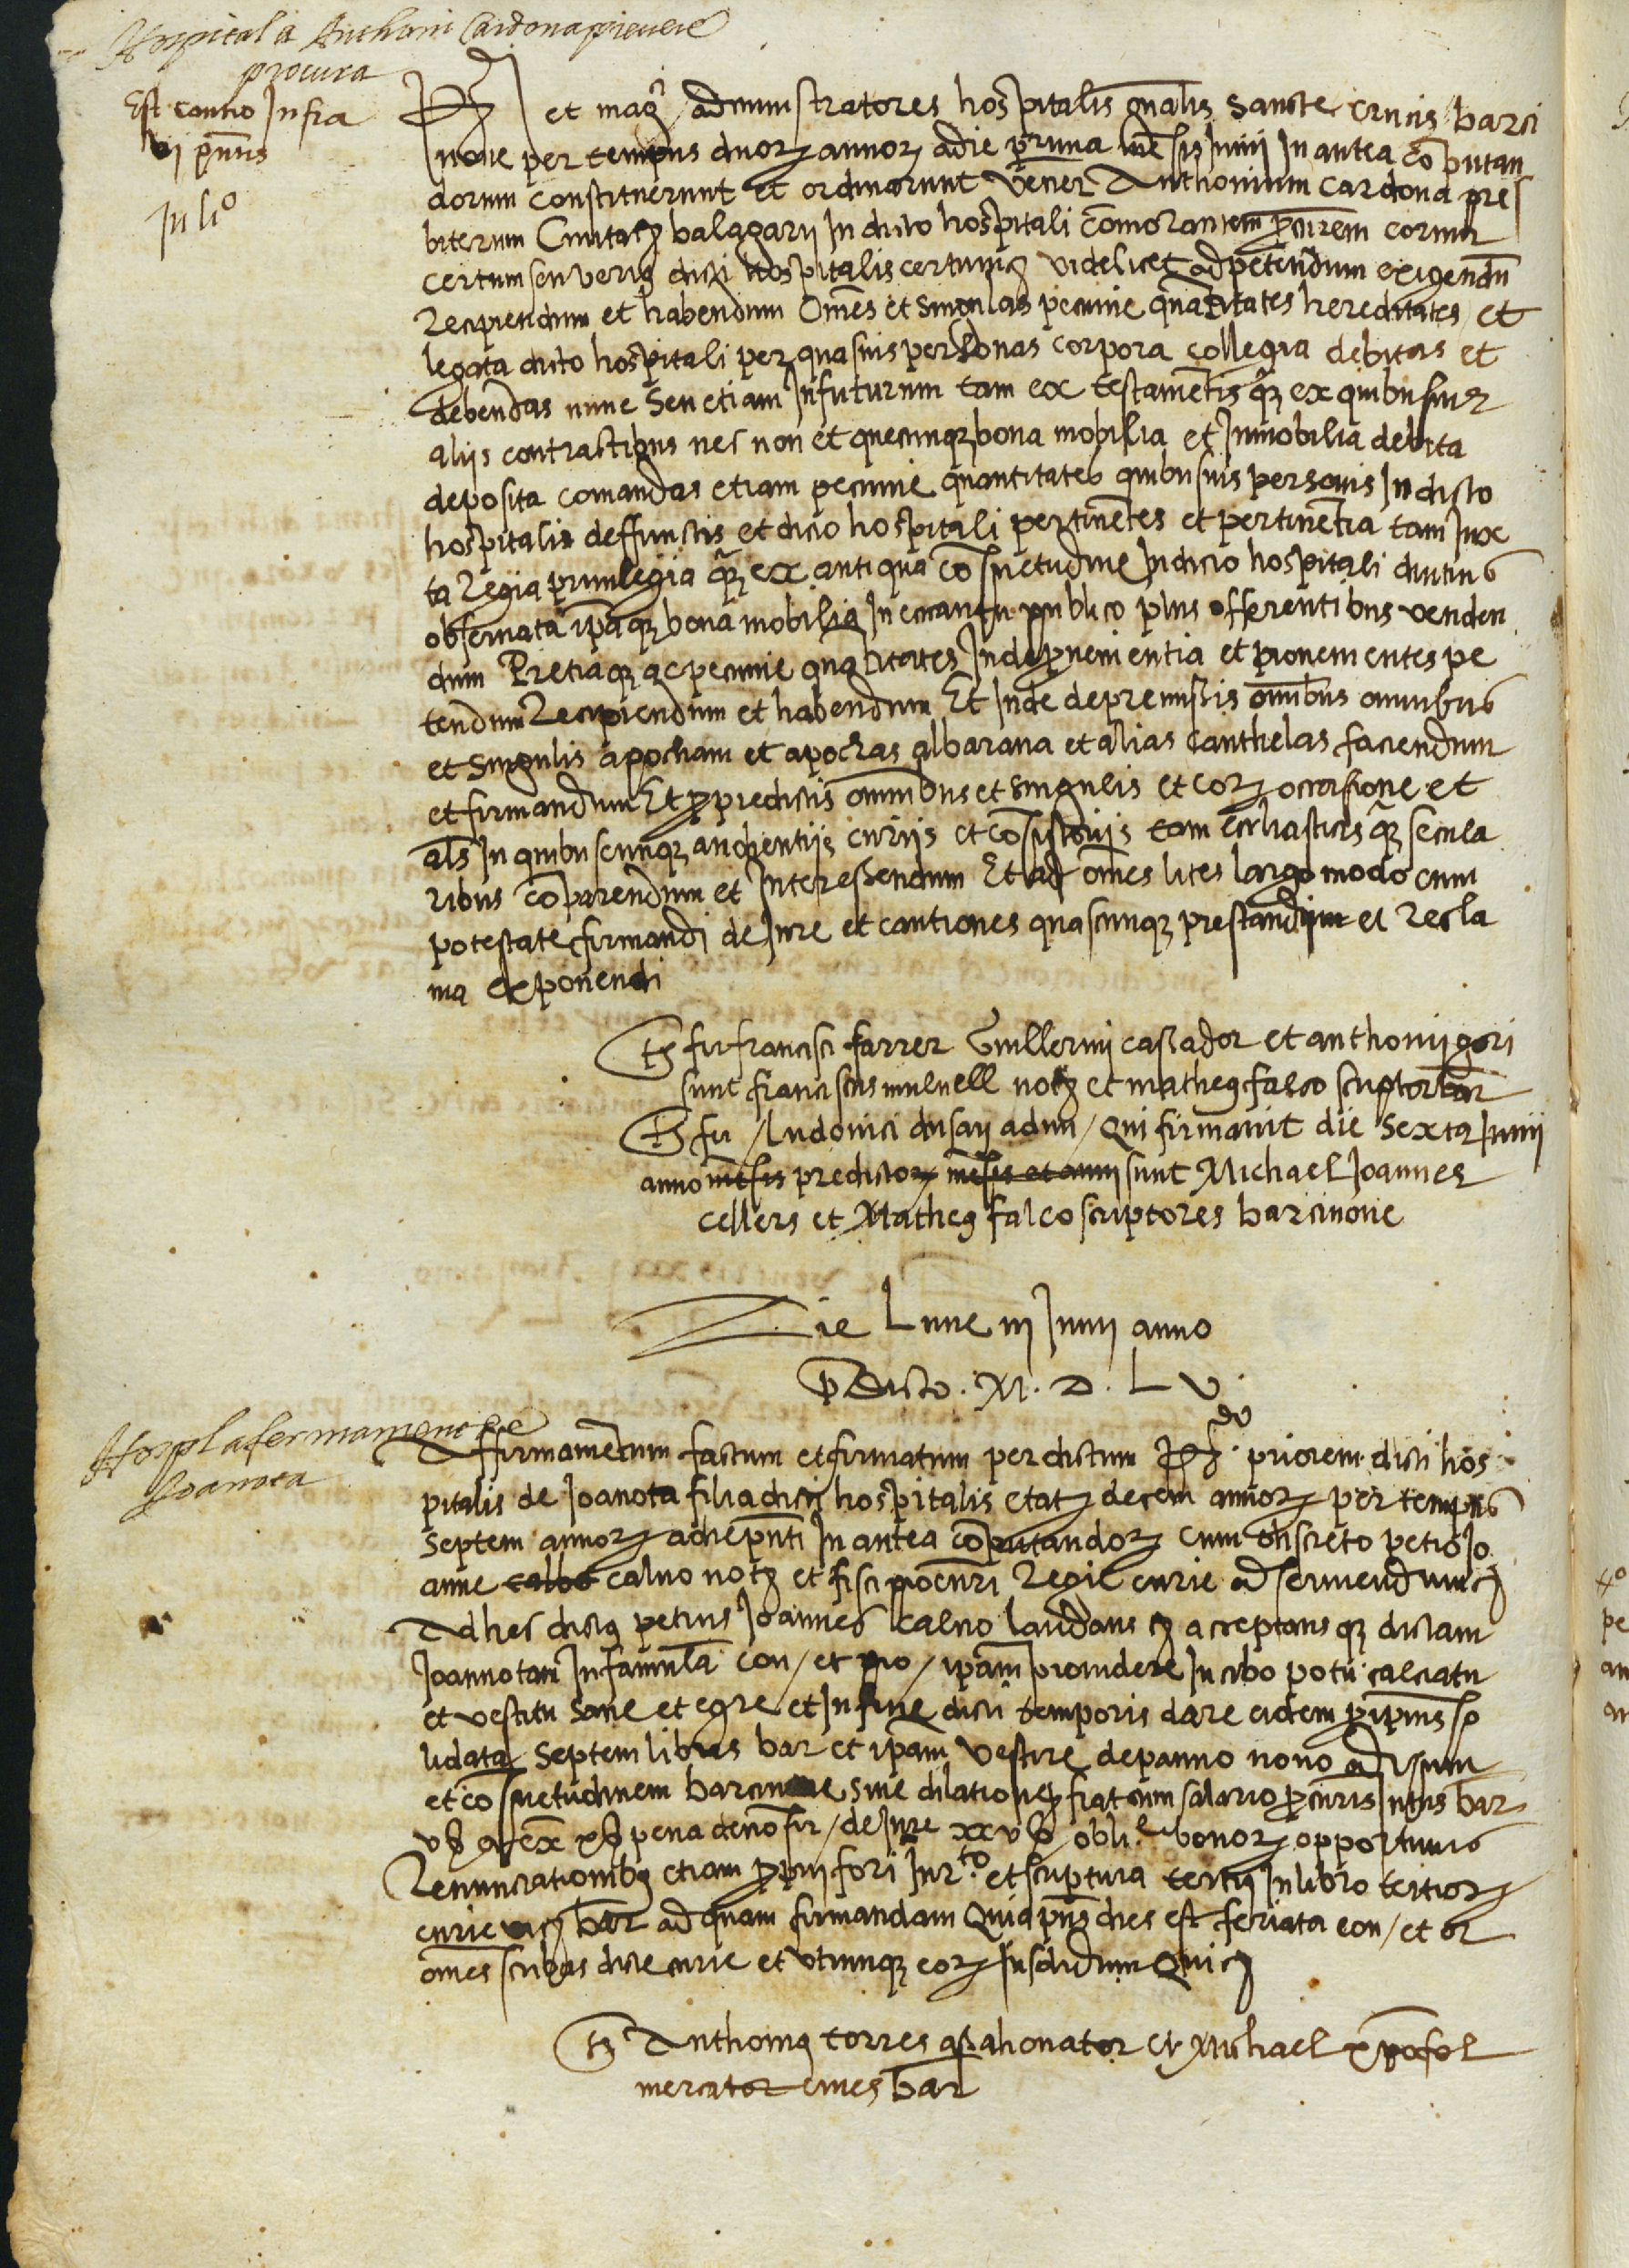 Hospitalis Anthoni Cardona prevere
procura
Est contio Infra
vi pntis
Julio
Rdi et magci administratores hospitalis gnalis sancte crucis barci
none per tempus duorz annorz a die prima mesis Junii In antea coputan
dorum constituerunt et ordinarunt vener Anthonium cardona pres
biterum Civitatis balagarii In dicto hospitali comorantem pcurem eorum
certum seu verius dicti hospitalis certum etc videlicet ad petendum exigendu
Recipiendum et habendum Omes et singulas pecunie quantitates hereditates et
legata dicto hospitali per quasvis personas corpora collegia debitas et
debendas nunc seu etiam In futurum tam ex testametis qz ex quibusvis
aliis contractibus nec non et quecunqz bona mobilia et Inmobilia debita
deposita comandas etiam pecunie quantitates quibusvis personis In dicto
hospitali deffunctis et dicto hospitali pertinetes et pertinetia tam Jux
ta Regia privilegia qz ex antiqua cosuetudine In dicto hospitali diutius
observata ipaqz bona mobilia In encantu publico plus offerentibus venden
dum Pretiaqz ac pecunie quantitates Inde pvenientia et provenientes pe
tendum Recipiendum et habendum Et Inde de premissis omibus omnibus
et singulis apocham et apochas albarana et alias cauthelas faciendum
et firmandum Et p predictis omnibus et singulis et eorz occasione et
als In quibuscunqz audientiis curiis et cosistoriis tam eccliasticis qz secula
ribus coparendum et Interessendum Et ad omes lites largo modo cum
potestate firmandi de Jure et cautiones quascunqz prestandum et recla
ma exponendi
ts fir francisci farrer Guillermi cassador et anthonii gori
sunt franciscus mulnell notz et matheus falco scriptor bar
ts fir / Ludovici dusay adm / Qui firmavit die sexta Junii
anno mesis predictorz mesis et anni sunt Michael Joannes
cellers et Matheus falco scriptores barcinone
Die Lune iii Junii anno
pdicto . M . D . L v .
Hospl afermament de
Joanota
Affirmametum factum et firmatum per dictum Rdum . priorem dicti hos
pitalis de Joanota filia dicti hospitalis etatis decem annorz per tempus
septem annorz a die pnti In antea coputandorz cum discreto petro Jo
anne calbo calvo notz et fisci procuri Regie curie ad serviendum etc
Ad hec dictus petrus Joannes calvo laudans etc acceptansqz dictam
Joannotam In famula con / et pro / ipam providere In cibo potu calciatu
et vestitu sane et egre et In fine dicti temporis dare eidem p ipius so
lidata septem libras bar et ipam vestire de panno novo ad usum
et cosuetudinem barcinone sine dilatione p fiat cum salario pcuris Intus bar
vs et ex xs pena de no fir / de Jure xxv ss obli.e bonorz opportunis
Renunciationibus etiam pprii fori Jur.to et scriptura tertii In libro tertiorz
curie vicii bar ad quam firmandam Quia pns dies est feriata con / et or
omes scribas dicte curie et utrunqz eorz Insolidum Qui etc
ts Anthonius torres assahonator et Michael xpofol
mercator cives bar